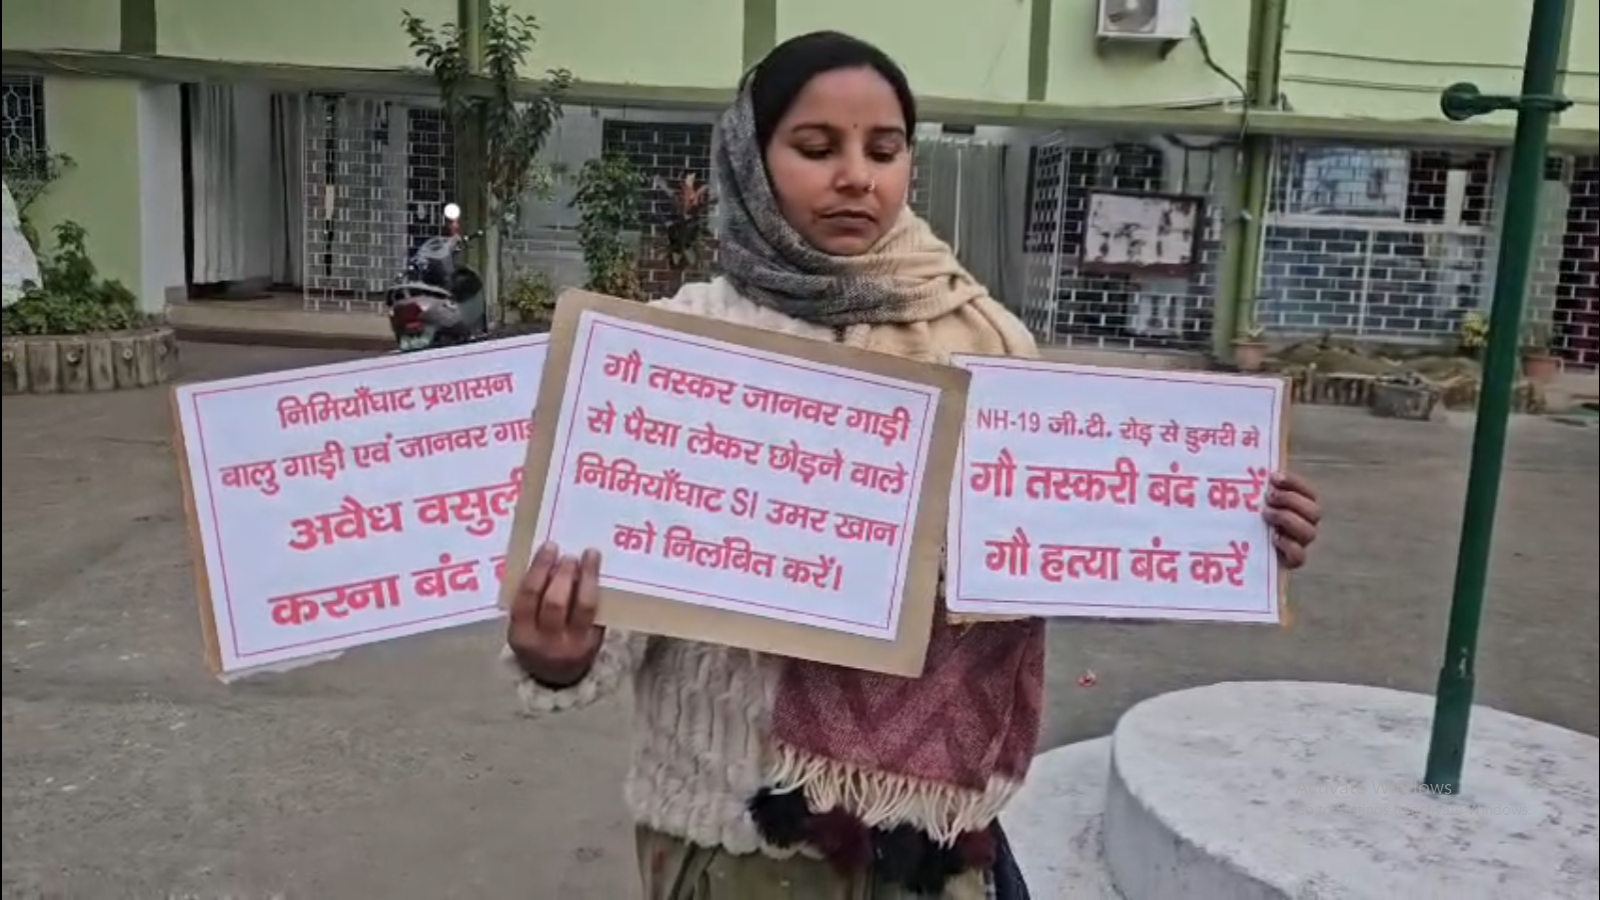 निमियाँघाट प्रशासन
वालु गाड़ी एवं जानवर
अवैध
करना बंद
गौ तस्कर जानवर गाड़ी
से पैसा लेकर छोड़ने वाले
निमियाँघाट SI उमर खान
को निलंबित करें।
NH-19 जी.टी. रोड़ से डुमरी मे
गौ तस्करी बंद करें
गौ हत्या बंद करें
Activate Windows